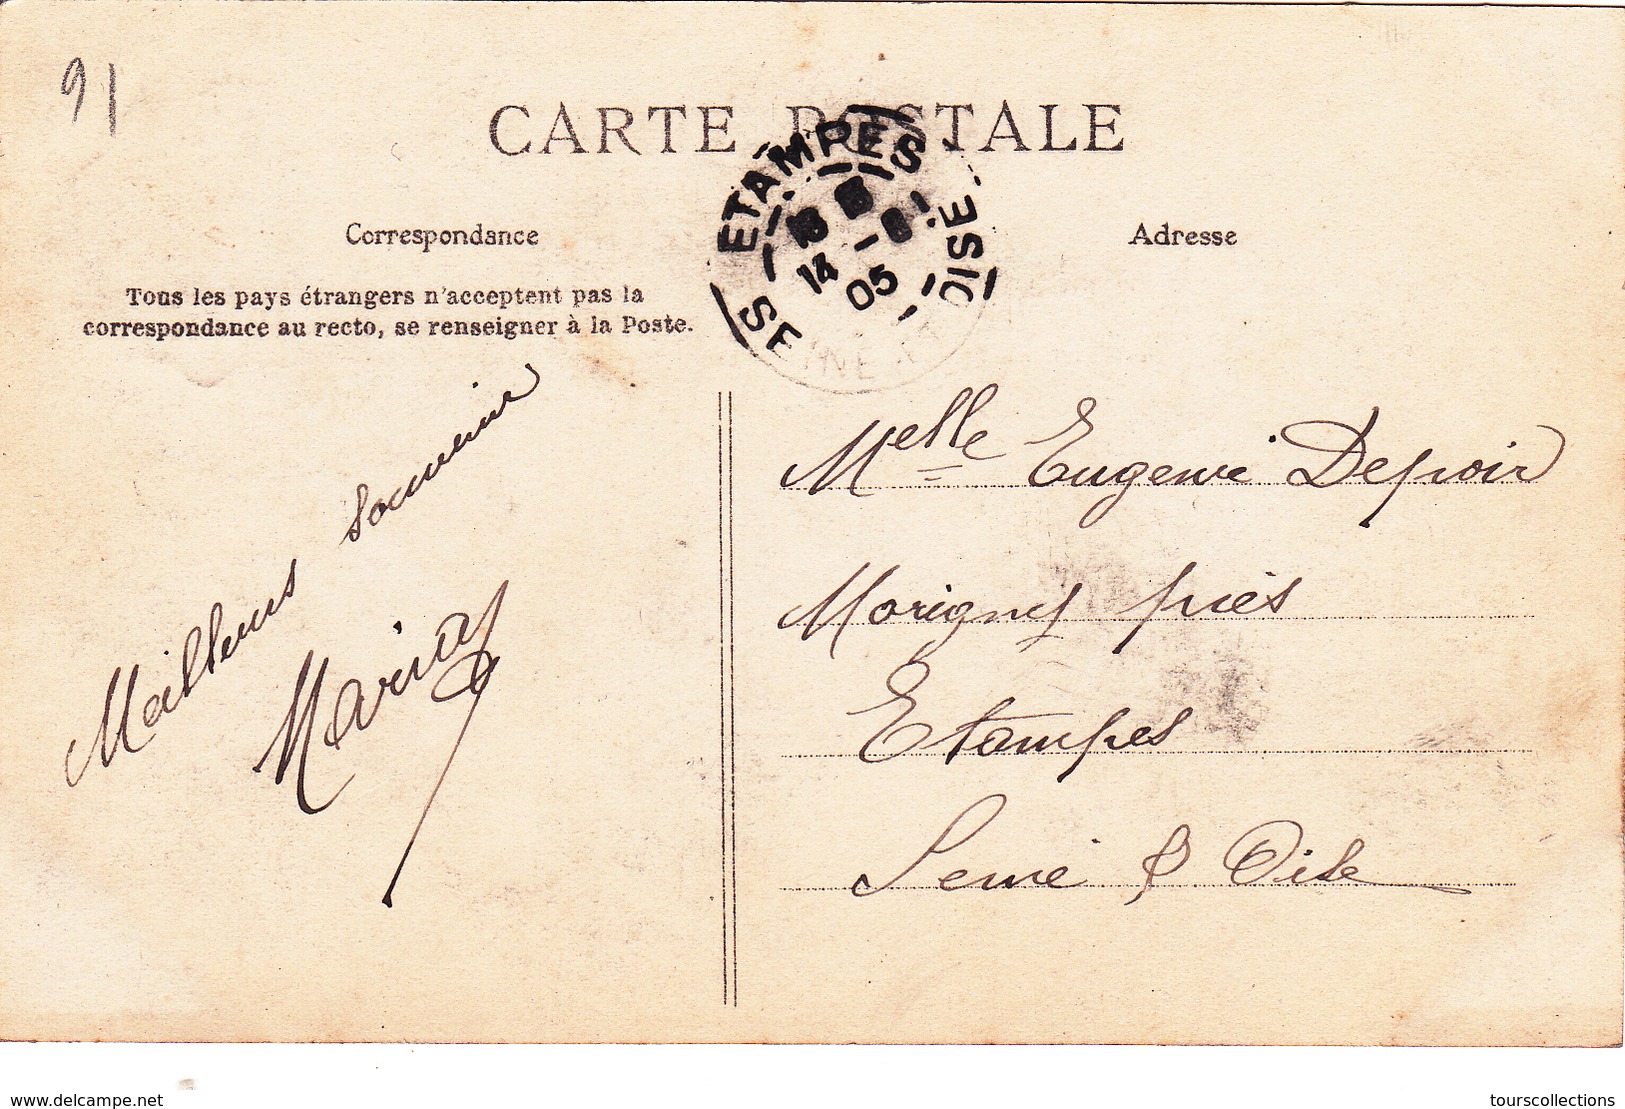 91
CARTE POSTALE
ETAMPES
14 - 8
05
SEINE ET OISE
Correspondance
Adresse
Tous les pays étrangers n'acceptent pas la
correspondance au recto, se renseigner à la Poste.
Meilleurs Souvenir
Melle Eugenie Depoir
Morigny près
Etampes
Seine & Oise
www.delcampe.net
tourscollections